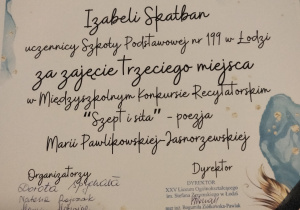 Izabeli Skatban
uczennicy Szkoły Podstawowej nr 199 w Łodzi
za zajęcie Trzeciego miejsca
w Międzyszkolnym Konkursie Recytatorskim
"Szept i siła" - poezja
Marii Pawlikowskiej-Jasnorzewskiej
Organizatorzy
Dyrektor
Dorota
DYREKTOR
XXV Liceum Ogólnokształcącego
im. Stefana Żeromskiego w Łodzi